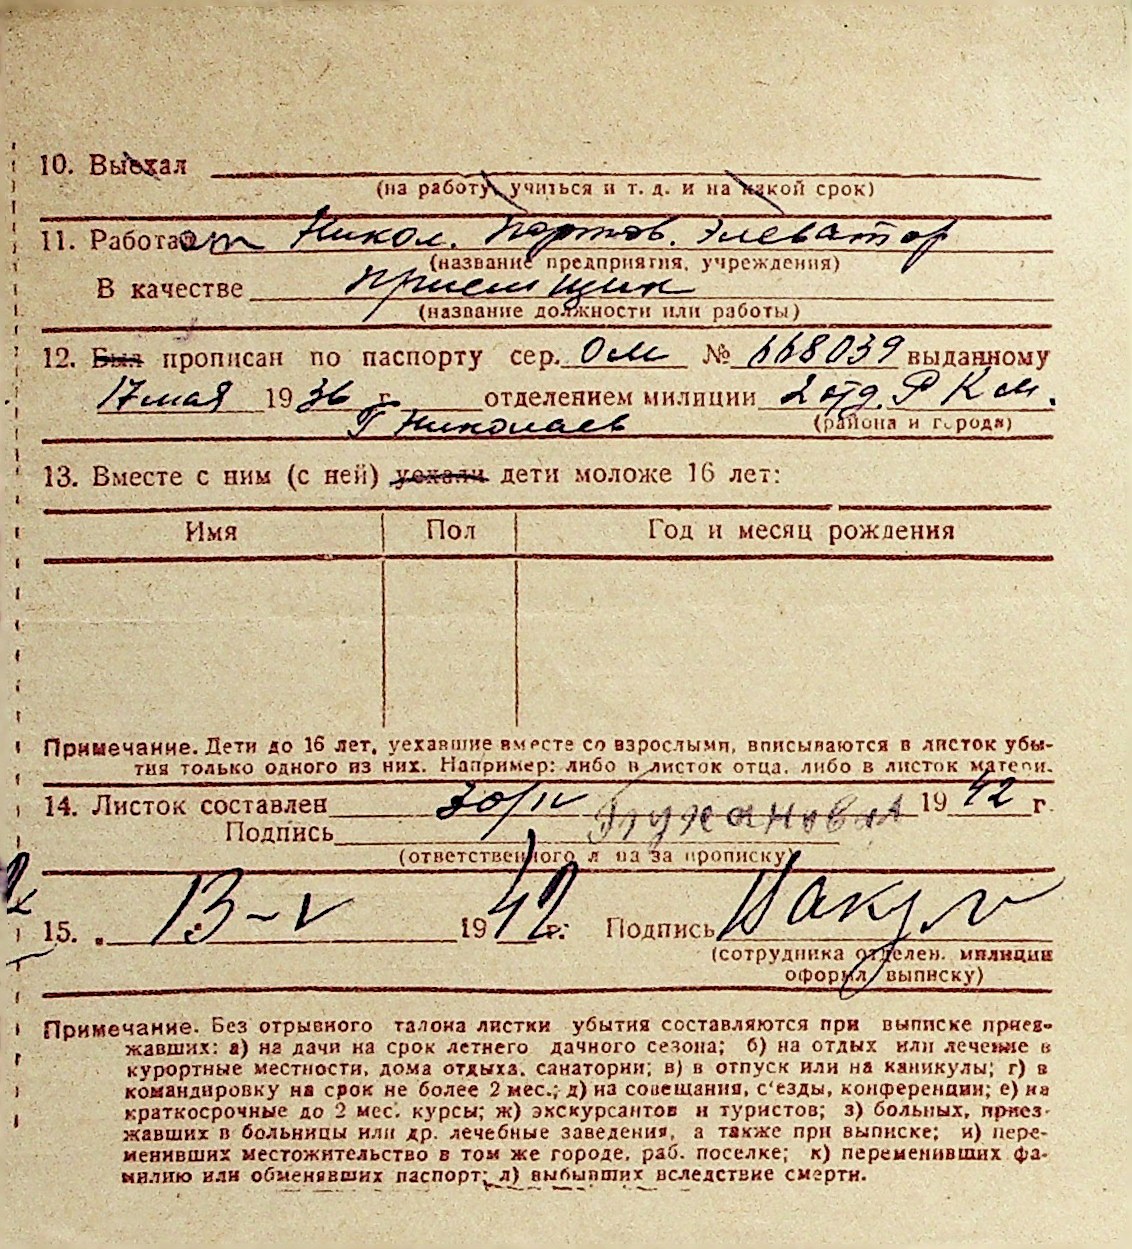 10. Выехал
(на работу, учиться и т. д. и на какой срок)
11. Работает Никол. Портов. Элеватор
(название предприятия, учреждения)
В качестве приемщик
(название должности или работы)
12. Был прописан по паспорту сер. ОМ № 668039 выданному
17 мая 1936 г. отделением милиции 2 отд. Р К М.
г Николаев (района и города)
13. Вместе с ним (с ней) уехали дети моложе 16 лет:
Имя Пол Год и месяц рождения
Примечание. Дети до 16 лет, уехавшие вместе со взрослыми, вписываются в листок убы-
тия только одного из них. Например: либо в листок отца, либо в листок матери.
14. Листок составлен 30/IV 1942 г.
Подпись
(ответственного лица за прописку)
15. 13-V 1942 г. Подпись
(сотрудника отделен. милиции
оформл. выписку)
Примечание. Без отрывного талона листки убытия составляются при выписке приез-
жавших: а) на дачи на срок летнего дачного сезона; б) на отдых или лечение в
курортные местности, дома отдыха, санатории; в) в отпуск или на каникулы; г) в
командировку на срок не более 2 мес.; д) на совещания, с'езды, конференции; е) на
краткосрочные до 2 мес. курсы; ж) экскурсантов и туристов; з) больных, приез-
жавших в больницы или др. лечебные заведения, а также при выписке; и) пере-
менивших местожительство в том же городе, раб. поселке; к) переменивших фа-
милию или обменявших паспорт; л) выбывших вследствие смерти.